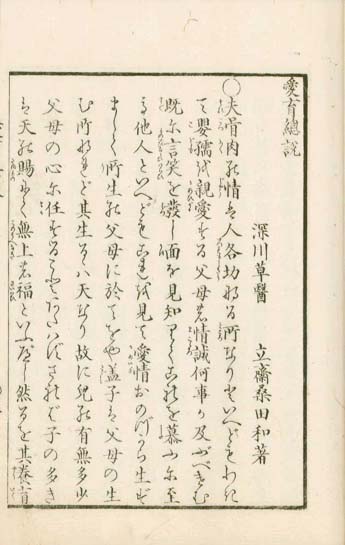 愛育總説
深川草醫 立齋桑田和著
〇夫骨肉の情は人各切なる所なりといへどもわき
て嬰孺を親愛する父母の情誠何事か及ぶべきむ
既に言笑を發し面を見知りてこれを慕ふに至
る他人といへどもこれを見て愛情おのづから生ず
まして所生の父母に於てをや盖子は父母の生
む所なれど其生るゝハ天なり故に兒の有無多少
父母の心に任するとあたはずされば子の多き
は天の賜にて無上の福といふべし然るを其養育